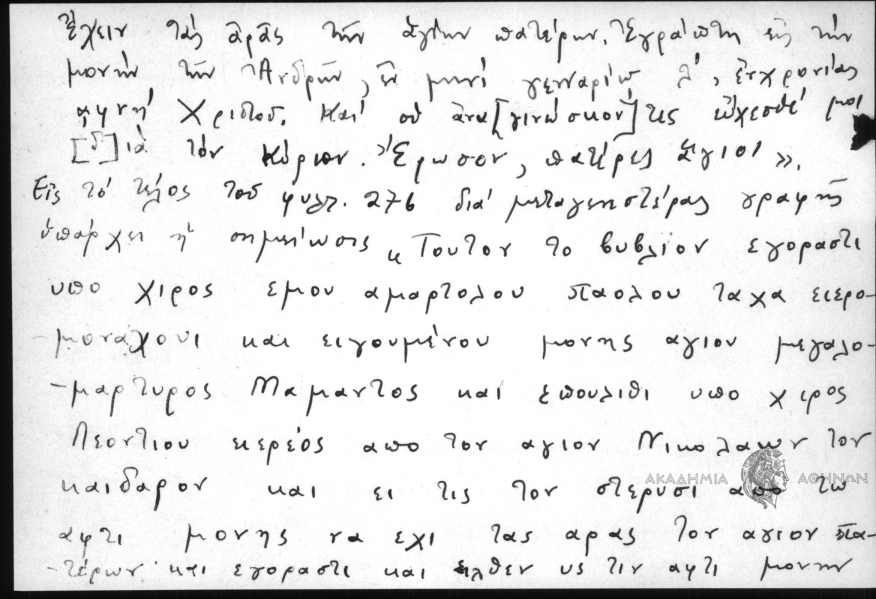 ἔχειν τὰς ἀρὰς τῶν ἁγίων πατέρων. Ἐγράπτη εἰς τὴν
μονὴν τῶν Ἀνδρῶν, ἐν μηνὶ γενναρίῳ λ', ἐνχρονίας
αφνη' Χριστοῦ. Καὶ οὐ ἀνα[γινώσκον]τες εὔχεσθέ μοι
[δ]ιὰ τὸν Κύριον. Ἔρωσον, πατέρες ἅγιοι».
Εἰς τὸ τέλος τοῦ φυλλ. 276 διὰ μεταγενστέρας γραφῆς
ὑπάρχει ἡ σημείωσις «Τουτον το βυβλιον εγοραστι
υπο χιρος εμου αμαρτολου παολου ταχα ειερο-
-μοναχουι και ειγουμένου μονης αγιον μεγαλο-
-μαρτυρος Μαμαντος και επουλιθι υπο χειρος
Λεοντιου ιερέος απο τον αγιον Νικολαων τον
καιδαρον και ει τις τον στερυσι απο τω
αφτι μονης να εχι τας αρας τον αγιον πα-
-τέρων και εγοραστι και ειλθεν υς τιν αφτι μονην
ΑΚΑΔΗΜΙΑ ΑΘΗΝΩΝ